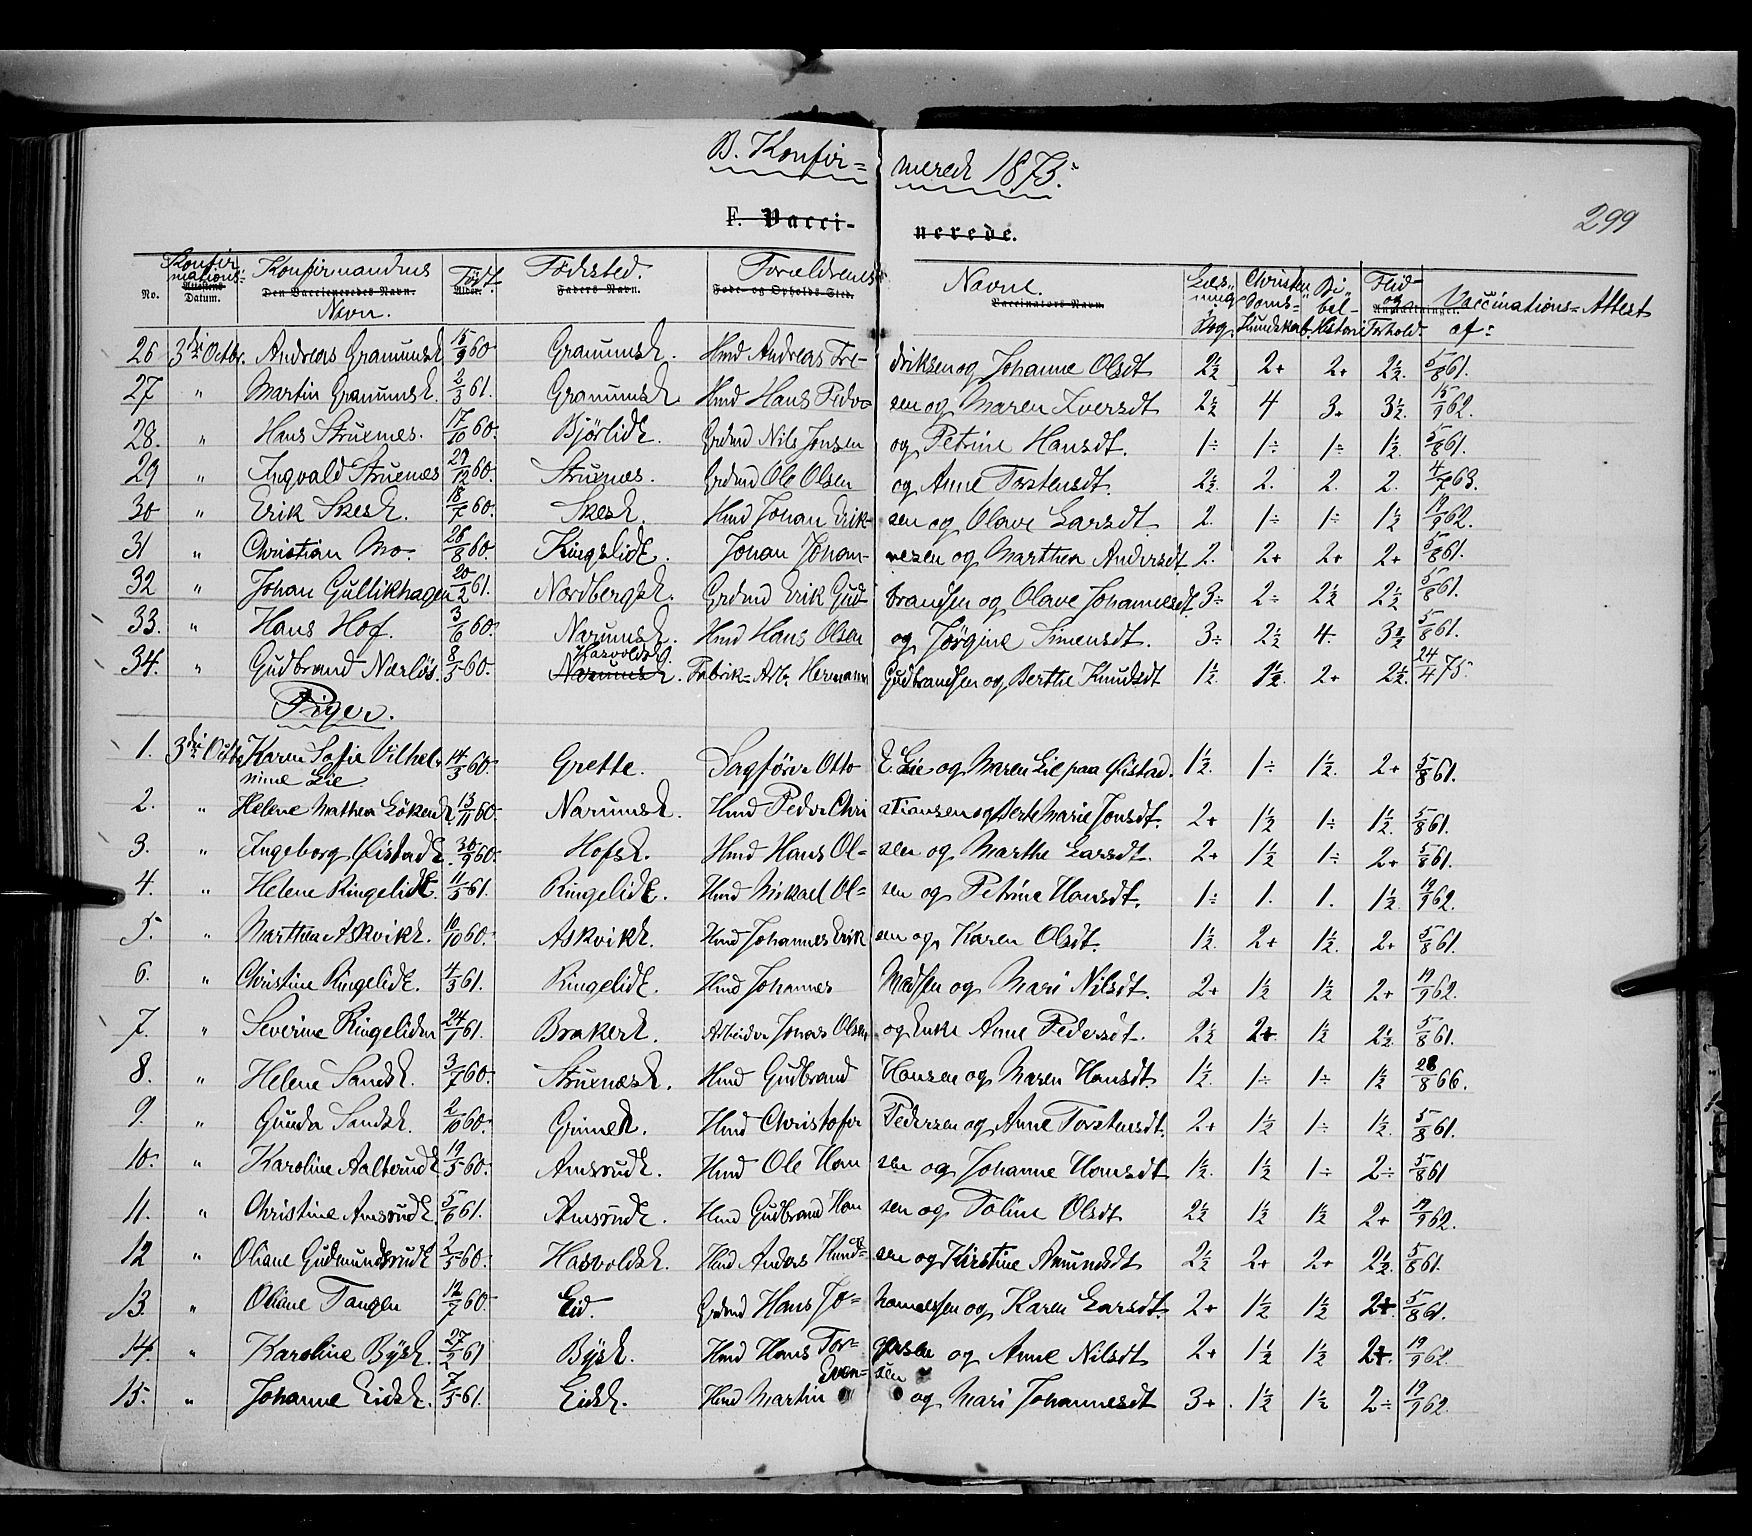 B. Konfir= merede 1875.
F. Vacci- nerede.
299
No. Konfirmations: Attestens Datum. Konfirmandens Navn. Den Vaccineredes Navn. Født. Alder. Fødested. Faders Navn. Forældrenes Føde- og Opholds-Sted. Navne. Vaccinators Navn. Læs- ning i Bog. Christen- doms- Kundskab. Bi- bel- Historie Flid og Forhold. Vaccinations-Attest af:
26 3die Octbr. Andreas Granumsk. 15/9 60 Granumsk. Hmd Andreas Fre- driksen og Johanne Olsdt 2½ 2+ 2+ 2½ 5/8 61.
27 " Martin Granumsk. 2/3 61. Granumsk Hmd Hans Peder= sen og Maren Iversdt 2½ 4 3+ 3½ 15/9 62.
28. " Hans Struxnes. 17/10 60. Bjørlide. Grdmd Nils Jonsen og Petrine Hansdt. 1÷ 1÷ 1÷ 1½ 5/8 61.
29 " Ingvald Struxnes 29/12 60. Struxnes. Grdmd Ole Olsen og Anne Torstensdt. 2½ 2. 2. 2. 4/7 63.
30 " Erik Skesk. 18/7 60. Skesk. Hmd Johan Erik- sen og Olave Larsdt 2. 1÷ 1÷ 1½ 19/9 62.
31 " Christian Mo. 26/8 60. Ringelide. Johan Johan- nesen og Marthea Andersdt 2. 2+ 2+ 2+ 5/8 61.
32 " Johan Gullikhagen 20/2 61. Nordbergsk. Grdmd Erik Gud- brandsen og Olave Johannesdt. 3÷ 2÷ 2½ 2½ 5/8 61.
33. " Hans Hof. 3/6 60. Narumsk. Hmd Hans Olsen og Jørgine Simensdt. 3÷ 2½ 4. 3½ 5/8 61.
34. " Gudbrand Narløs. 8/5 60. Hasvoldsk. Narumsk. Fabrik-Arb. Hermann Gudbrandsen og Berthe Knudsdt 1½. 1½. 2+ 2½. 24/4 75.
Piger.
1. 3die Octbr Karen Sofie Vilhel- 14/3 60. Grette. Sagfører Otto E. Lie og Maren Lie paa Øistad. 1½. 1÷ 1½. 2+ 5/8 61.
mine Lie
2. " Helene Mathea Løkensk. 13/11 60. Narumsk. Hmd Peder Chri stiansen og Berte Marie Jonsdt. 2+ 1½ 1÷ 1½. 5/8 61.
3. " Ingeborg Øistadk. 30/9 60. Hofsk. Hmd Hans Ol= sen og Marthe Larsdt. 2+ 1½ 1÷ 2+ 5/8 61.
4. " Helene Ringelide. 11/3 61. Ringelide. Hmd Mikael Ol= sen og Petrine Hansdt. 1÷ 1. 1. 1½ 19/9 62.
5. " Marthea Askvikk. 10/10 60. Askvikk. Hmd Johannes Erik sen og Karen Olsdt. 1½. 2+ 1½. 2+ 5/8 61.
6. " Christine Ringelide. 4/3 61. Ringelide. Hmd Johannes Madsen og Mari Nilsdt. 2+ 1½ 1½ 2+ 19/9 62.
7. " Severine Ringeliden 24/1 61. Brakerk. Arbeider Jonas Olsen og Enke Anne Pedersdt. 2½ 2+ 1½ 2½ 5/8 61.
8. " Helene Sandsk. 3/7 60. Struxnæsk. Hmd Gudbrand Hansen og Maren Hansdt. 1½. 1÷ 1÷ 1½ 28/8 66.
9. " Gunda Sandsk. 2/10 60. Grimek. Hmd Christofer Pedersen og Anne Torstensdt. 2+ 1½ 1÷ 1½. 5/8 61.
10. " Karoline Aalterudk 19/5 60. Amsrudk. Hmd Ole Han sen og Johanne Hansdt 1½. 1½ 1÷ 2÷ 5/8 61
11. " Christine Amsrudk. 5/6 61. Amsrudk. Hmd Gudbrand Han sen og Toline Olsdt 2½ 1½ 1½ 2+ 19/9 62.
12 " Oliane Gudmundsrudk 2/5 60. Hasvoldsk. Hmd Anders Knud- sen og Kirstine Amundsdt 2½ 2+ 2+ 2½. 5/8 61.
13 " Oliane Tangen 12/7 60. Eid. Grdmd Hans Jo- hannessen og Karen Larsdt. 2+ 1½ 1½ 2+. 5/8 61.
14. " Karoline Bysk. 27/2 61 Bysk. Hmd Hans Tor- gersen og Anne Nilsdt 2+ 1½ 1½ 2+. 19/9 62.
15. " Johanne Eidsk. 7/5 61. Eidsk. Hmd Martin Even- sen og Mari Johannesdt 3+. 1½ 1½ 2÷ 19/9 62.